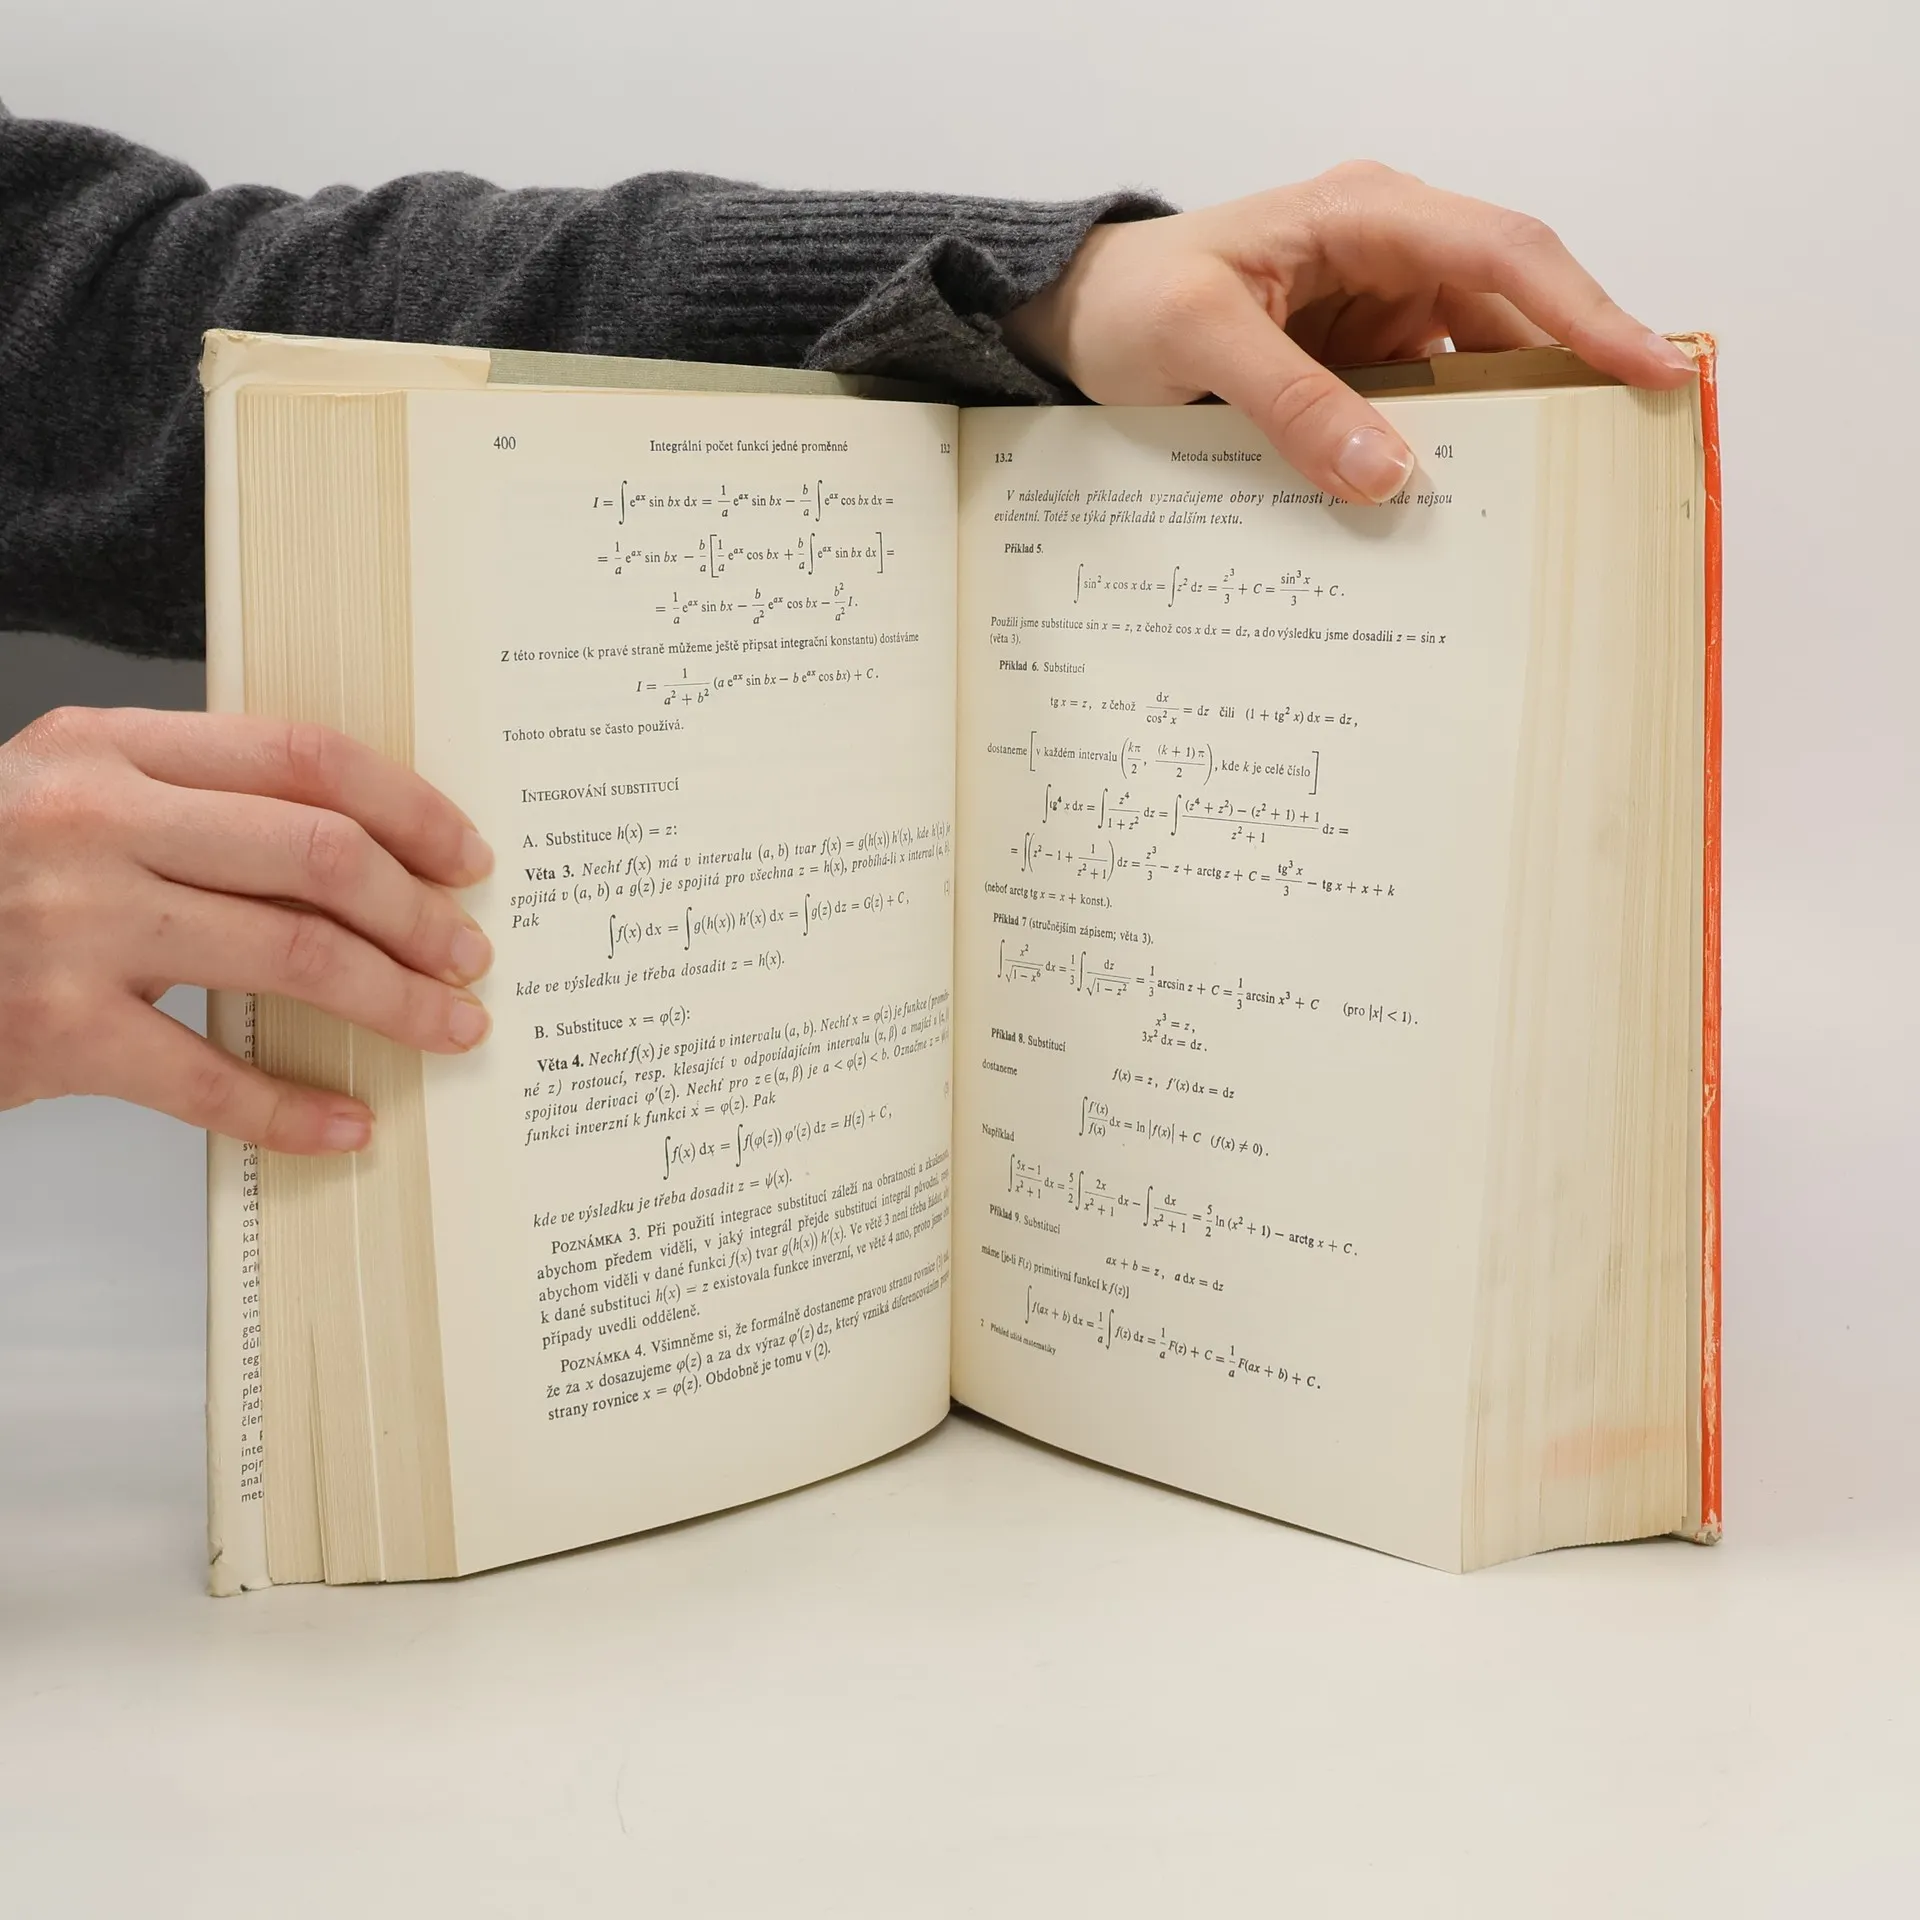 400 Integrální počet funkcí jedné proměnné 13.2
I = ∫ e^{ax} sin bx dx = 1/a e^{ax} sin bx − b/a ∫ e^{ax} cos bx dx =
= 1/a e^{ax} sin bx − b/a [1/a e^{ax} cos bx + b/a ∫ e^{ax} sin bx dx] =
= 1/a e^{ax} sin bx − b/a² e^{ax} cos bx − b²/a² I.
Z této rovnice (k pravé straně můžeme ještě připsat integrační konstantu) dostáváme
I = 1/(a² + b²) (a e^{ax} sin bx − b e^{ax} cos bx) + C.
Tohoto obratu se často používá.
INTEGROVÁNÍ SUBSTITUCÍ
A. Substituce h(x) = z:
Věta 3. Nechť f(x) má v intervalu (a, b) tvar f(x) = g(h(x)) h′(x), kde h′(x) je
spojitá v (a, b) a g(z) je spojitá pro všechna z = h(x), probíhá-li x interval (a, b).
Pak
∫ f(x) dx = ∫ g(h(x)) h′(x) dx = ∫ g(z) dz = G(z) + C,
kde ve výsledku je třeba dosadit z = h(x).
B. Substituce x = φ(z):
Věta 4. Nechť f(x) je spojitá v intervalu (a, b). Nechť x = φ(z) je funkce (proměn-
né z) rostoucí, resp. klesající v odpovídajícím intervalu (α, β) a mající v (α, β)
spojitou derivaci φ′(z). Nechť pro z ∈ (α, β) je a < φ(z) < b. Označme z =
funkci inverzní k funkci x = φ(z). Pak
∫ f(x) dx = ∫ f(φ(z)) φ′(z) dz = H(z) + C,
kde ve výsledku je třeba dosadit z = ψ(x).
POZNÁMKA 3. Při použití integrace substitucí záleží na obratnosti a
abychom předem viděli, v jaký integrál přejde substitucí integrál původní,
abychom viděli v dané funkci f(x) tvar g(h(x)) h′(x). Ve větě 3 není třeba žádat, aby
k dané substituci h(x) = z existovala funkce inverzní, ve větě 4 ano, proto jsme oba
případy uvedli odděleně.
POZNÁMKA 4. Všimněme si, že formálně dostaneme pravou stranu rovnice (3)
že za x dosazujeme φ(z) a za dx výraz φ′(z) dz, který vzniká diferencováním
strany rovnice x = φ(z). Obdobně je tomu v (2).
13.2 Metoda substituce 401
V následujících příkladech vyznačujeme obory platnosti kde nejsou
evidentní. Totéž se týká příkladů v dalším textu.
Příklad 5.
∫ sin² x cos x dx = ∫ z² dz = z³/3 + C = sin³ x/3 + C.
Použili jsme substituce sin x = z, z čehož cos x dx = dz, a do výsledku jsme dosadili z = sin x
(věta 3).
Příklad 6. Substitucí
tg x = z, z čehož dx/cos² x = dz čili (1 + tg² x) dx = dz,
dostaneme [v každém intervalu (kπ/2, (k + 1)π/2), kde k je celé číslo]
∫ tg⁴ x dx = ∫ z⁴/(1 + z²) dz = ∫ ((z⁴ + z²) − (z² + 1) + 1)/(z² + 1) dz =
= ∫ (z² − 1 + 1/(z² + 1)) dz = z³/3 − z + arctg z + C = tg³ x/3 − tg x + x + k
(neboť arctg tg x = x + konst.).
Příklad 7 (stručnějším zápisem; věta 3).
∫ x²/√(1 − x⁶) dx = 1/3 ∫ dz/√(1 − z²) = 1/3 arcsin z + C = 1/3 arcsin x³ + C (pro |x| < 1).
x³ = z,
3x² dx = dz.
Příklad 8. Substitucí
f(x) = z, f′(x) dx = dz
dostaneme
∫ f′(x)/f(x) dx = ln |f(x)| + C (f(x) ≠ 0).
Například
∫ (5x − 1)/(x² + 1) dx = 5/2 ∫ 2x/(x² + 1) dx − ∫ dx/(x² + 1) = 5/2 ln (x² + 1) − arctg x + C.
Příklad 9. Substitucí
ax + b = z, a dx = dz
máme [je-li F(z) primitivní funkcí k f(z)]
∫ f(ax + b) dx = 1/a ∫ f(z) dz = 1/a F(z) + C = 1/a F(ax + b) + C.
2 Přehled užité matematiky